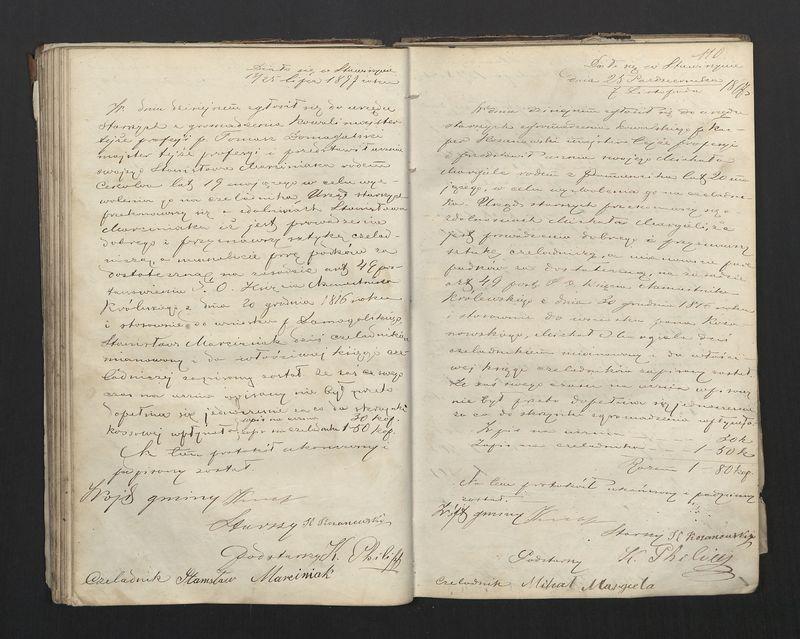 Działo się w Stawiszynie
13/25 lipca 1897 roku
W dniu dzisiejszym zgłosił się do urzędu
starszych zgromadzenia Kowali majster
tejże profesji p. Tomasz Domagalski
majster tejże profesji i przedstawił ucznia
swojego Stanisława Marciniaka rodem
lat 19 mającego w celu wyz-
wolenia go na czeladnika, Urząd starszych
przekonawszy się o zdolnościach Stanisława
Marciniaka iż jest prowadzenia
dobrego i przyznawszy sztukę czelad-
niczą a mianowicie parę podków za
dostateczną na zasadzie art 49 po-
stanowienia J. O. Księcia Namiestnika
Królewsk. z dnia 20 grudnia 1816 roku
i stosownie do wniosku p Domagalskiego
Stanisław Marciniak dziś czeladnikiem
mianowany i do właściwej księgi cze-
ladniczej zapisany został, że zaś swego
czasu na ucznia wpisany nie był przeto
dopełnia się jednocześnie za co do skrzynki
kassowej wpłynęło zapis na ucznia 30 kop.
zapis na czeladnika 1-50 kop.
Na tem protokół ukończony i
podpisany został.
Wójt gminy
Starszy K Kozanowski
Podstarszy K. Philipp
Czeladnik Stanisław Marciniak
110
Działo się w Stawiszynie
dnia 25 Października
7 Listopada 1897
W dniu dzisiejszym zgłosił się do urzędu
starszych zgromadzenia kowalskiego p Kac-
per Kozanowski majster tejże profesji
i przedstawił ucznia swojego Michała
Margiela rodem z lat 20 ma-
jącego, w celu wyzwolenia go na czeladni-
ka. Urząd starszych przekonawszy się o
zdolnościach Michała Margieli, że
jest prowadzenia dobrego i przyznawszy
sztukę czeladniczą, a mianowicie parę
podków za dostateczną, na zasadzie
art 49 post J. O. Księcia Namiestnika
Królewskiego z dnia 20 grudnia 1816 roku
i stosownie do wniosku pana Koza-
nowskiego, Michał Margiela dziś
czeladnikiem mianowany i do właści-
wej księgi czeladników zapisany został.
Że zaś swego czasu na ucznia wpisany
nie był przeto dopełnia się jednocześnie
za co do skrzynki zgromadzenia wpłynęło
Zapis na ucznia 30 k.
Zapis na czeladnika 1-50 k
Razem 1-80 kop.
Na tem protokół ukończony i podpisany
został.
Wójt gminy
Starszy K Kozanowski
Podstarszy K. Philipp
Czeladnik Mihał Margiela